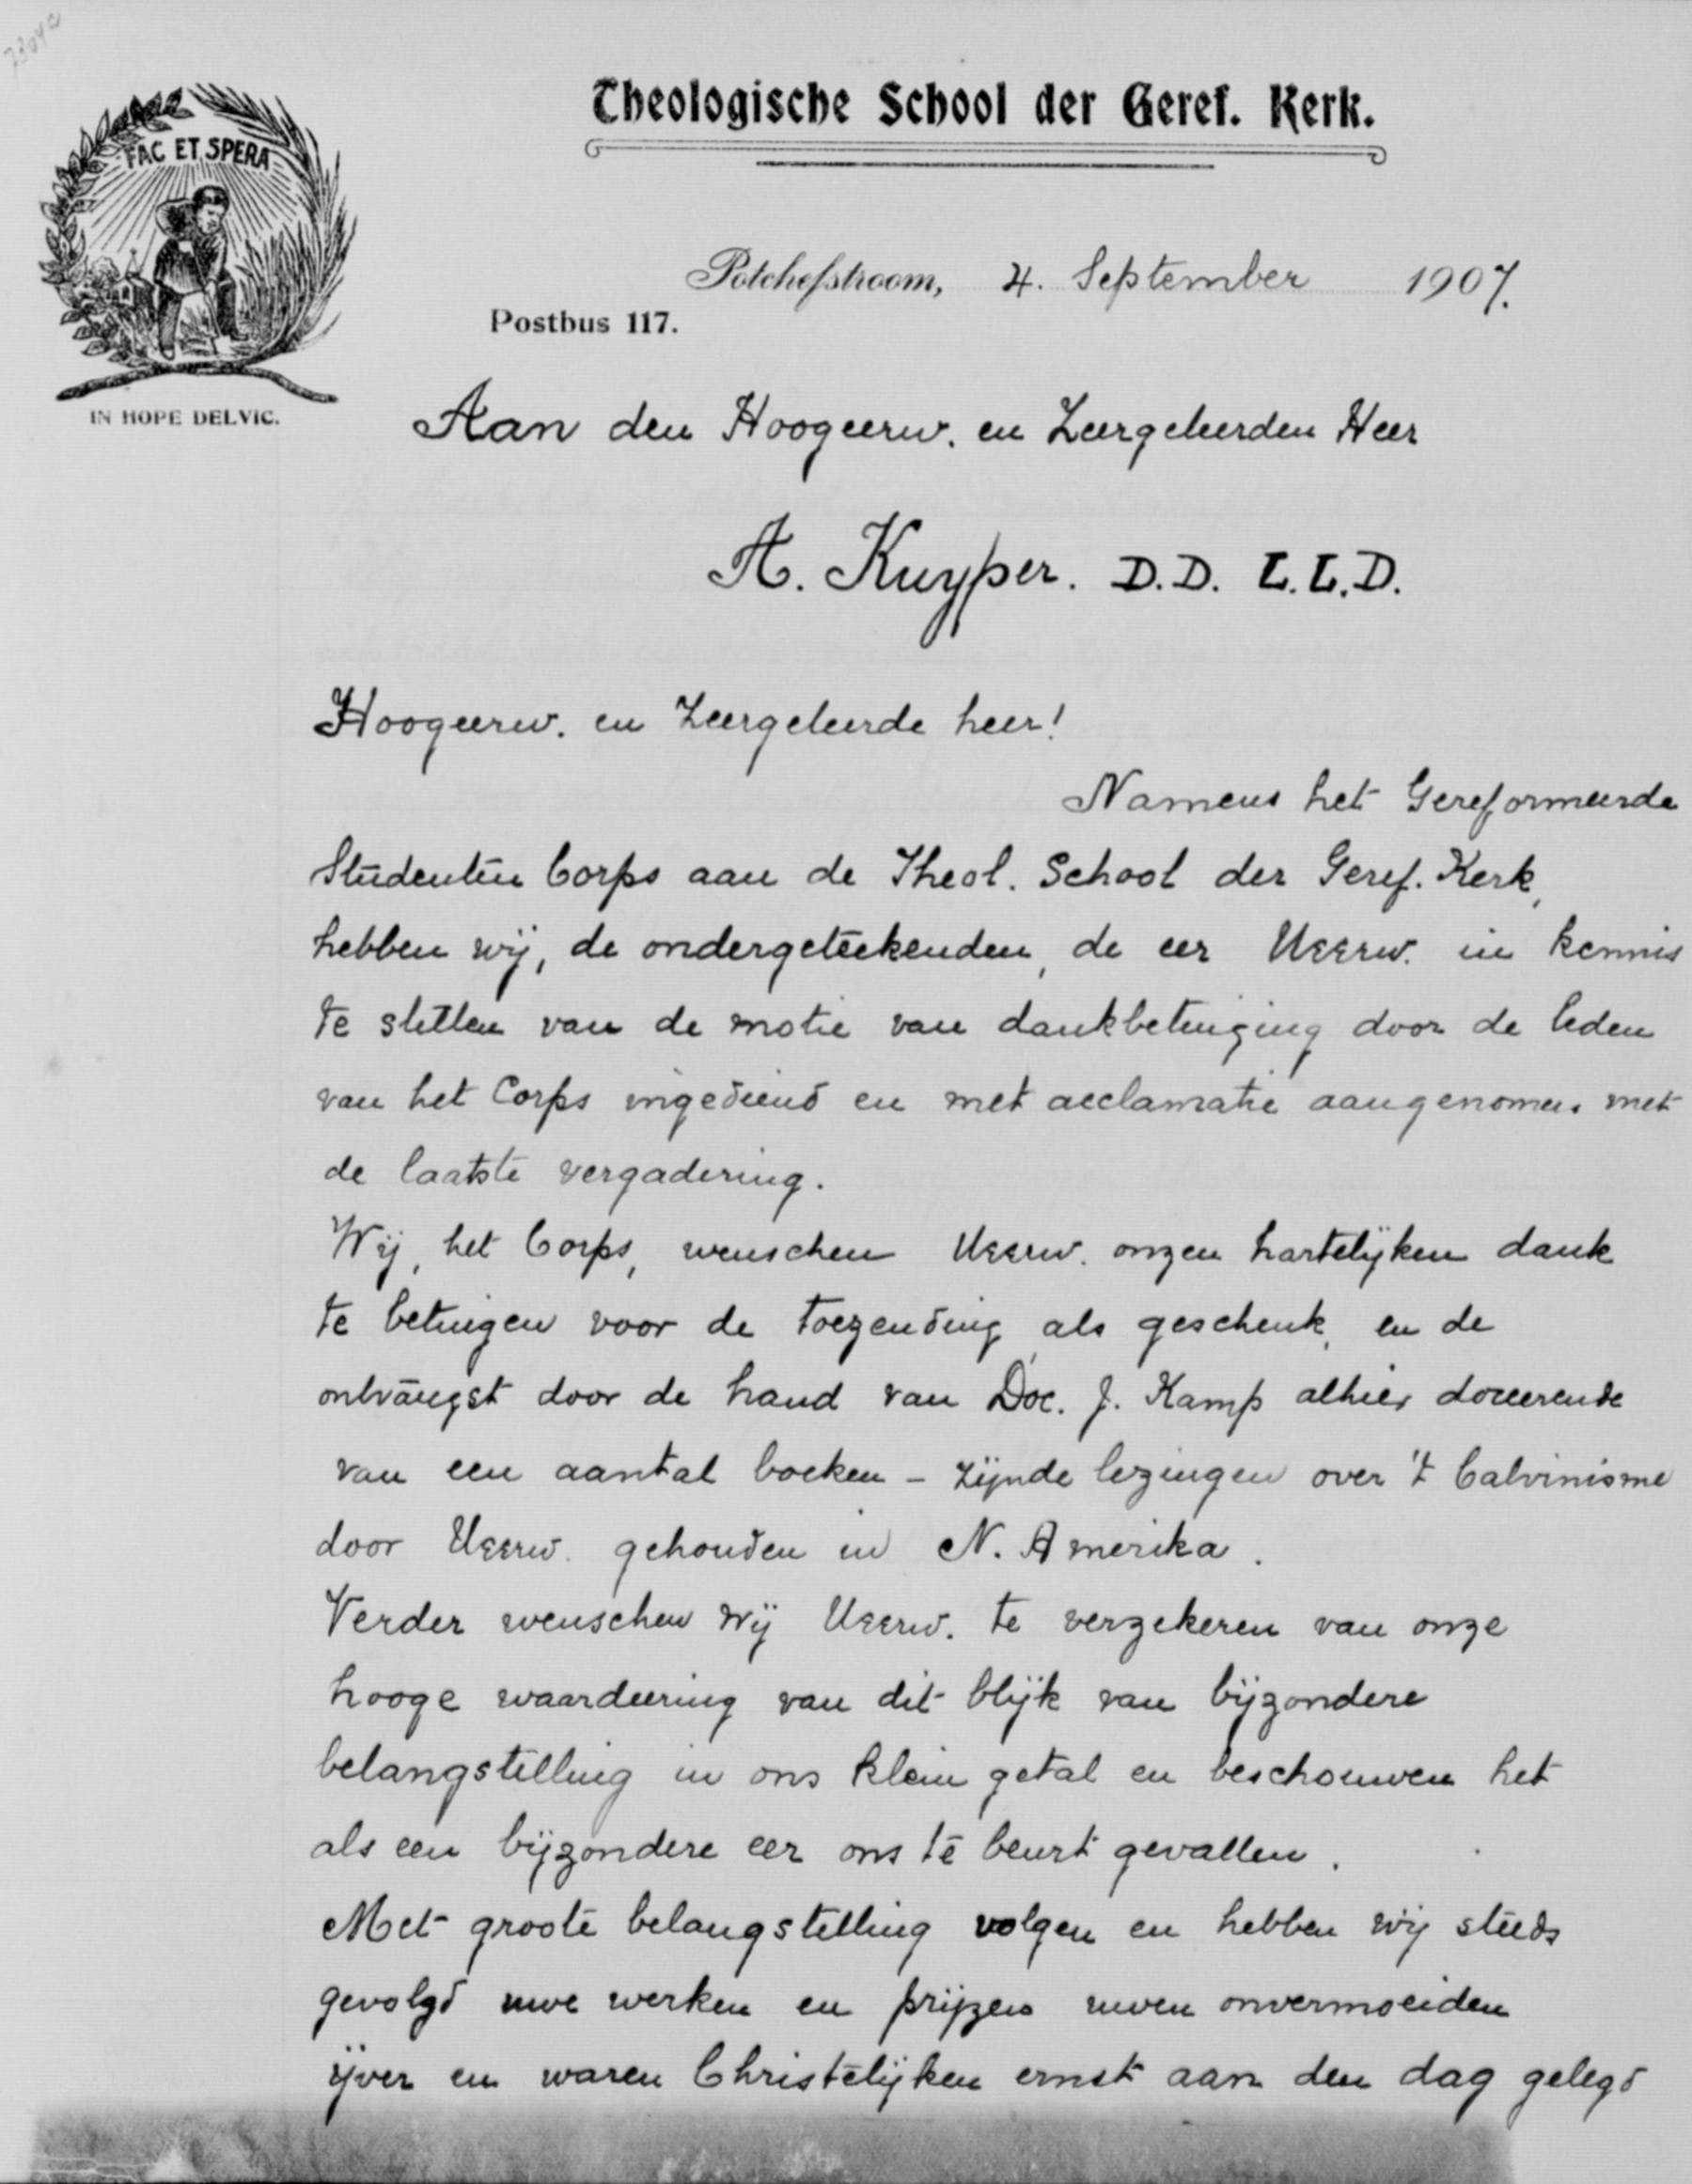 7304a
Theologische School der Geref. Kerk.
FAC ET SPERA
IN HOPE DELVIC.
Potchefstroom, 4. September 1907.
Postbus 117.
Aan den Hoogeerw. en Zeergeleerden Heer
A. Kuyper. D.D. L.L.D.
Hoogeerw. en Zeergeleerde heer!
Namens het Gereformeerde
Studenten Corps aan de Theol. School der Geref. Kerk,
hebben wij, de ondergeteekenden, de eer UEerw. in kennis
te stellen van de motie van dankbetuiging door de leden
van het Corps ingediend en met acclamatie aangenomen met
de laatste vergadering.
Wij, het Corps, wenschen UEerw. onzen hartelijken dank
te betuigen voor de toezending, als geschenk, en de
ontvangst door de hand van Doc. J. Kamp alhier doceerende
van een aantal boeken – zijnde lezingen over 't Calvinisme
door UEerw. gehouden in N. Amerika.
Verder wenschen wij UEerw. te verzekeren van onze
hooge waardeering van dit blijk van bijzondere
belangstelling in ons klein getal en beschouwen het
als een bijzondere eer ons te beurt gevallen.
Met groote belangstelling volgen en hebben wij steeds
gevolgd uwe werken en prijzen uwen onvermoeiden
ijver en waren Christelijken ernst aan den dag gelegd